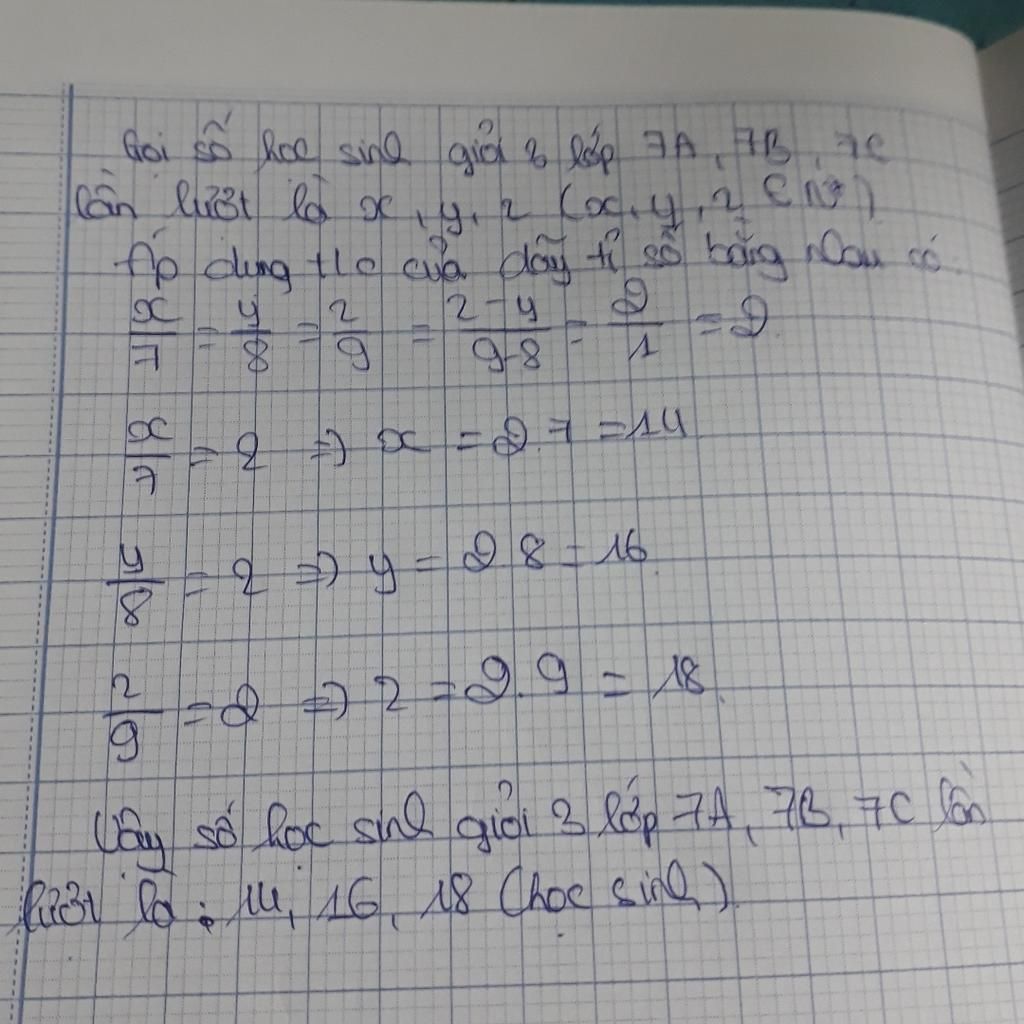 Gọi số học sinh giỏi 3 lớp 7A, 7B, 7C
lần lượt là x, y, z (x, y, z ∈ N*)
Áp dụng t/c của dãy tỉ số bằng nhau có
x/7 = y/8 = z/9 = z-y/9-8 = 2/1 = 2
x/7 = 2 => x = 2.7 = 14
y/8 = 2 => y = 2.8 = 16
z/9 = 2 => z = 2.9 = 18
Vậy số học sinh giỏi 3 lớp 7A, 7B, 7C lần
lượt là: 14, 16, 18 (học sinh)